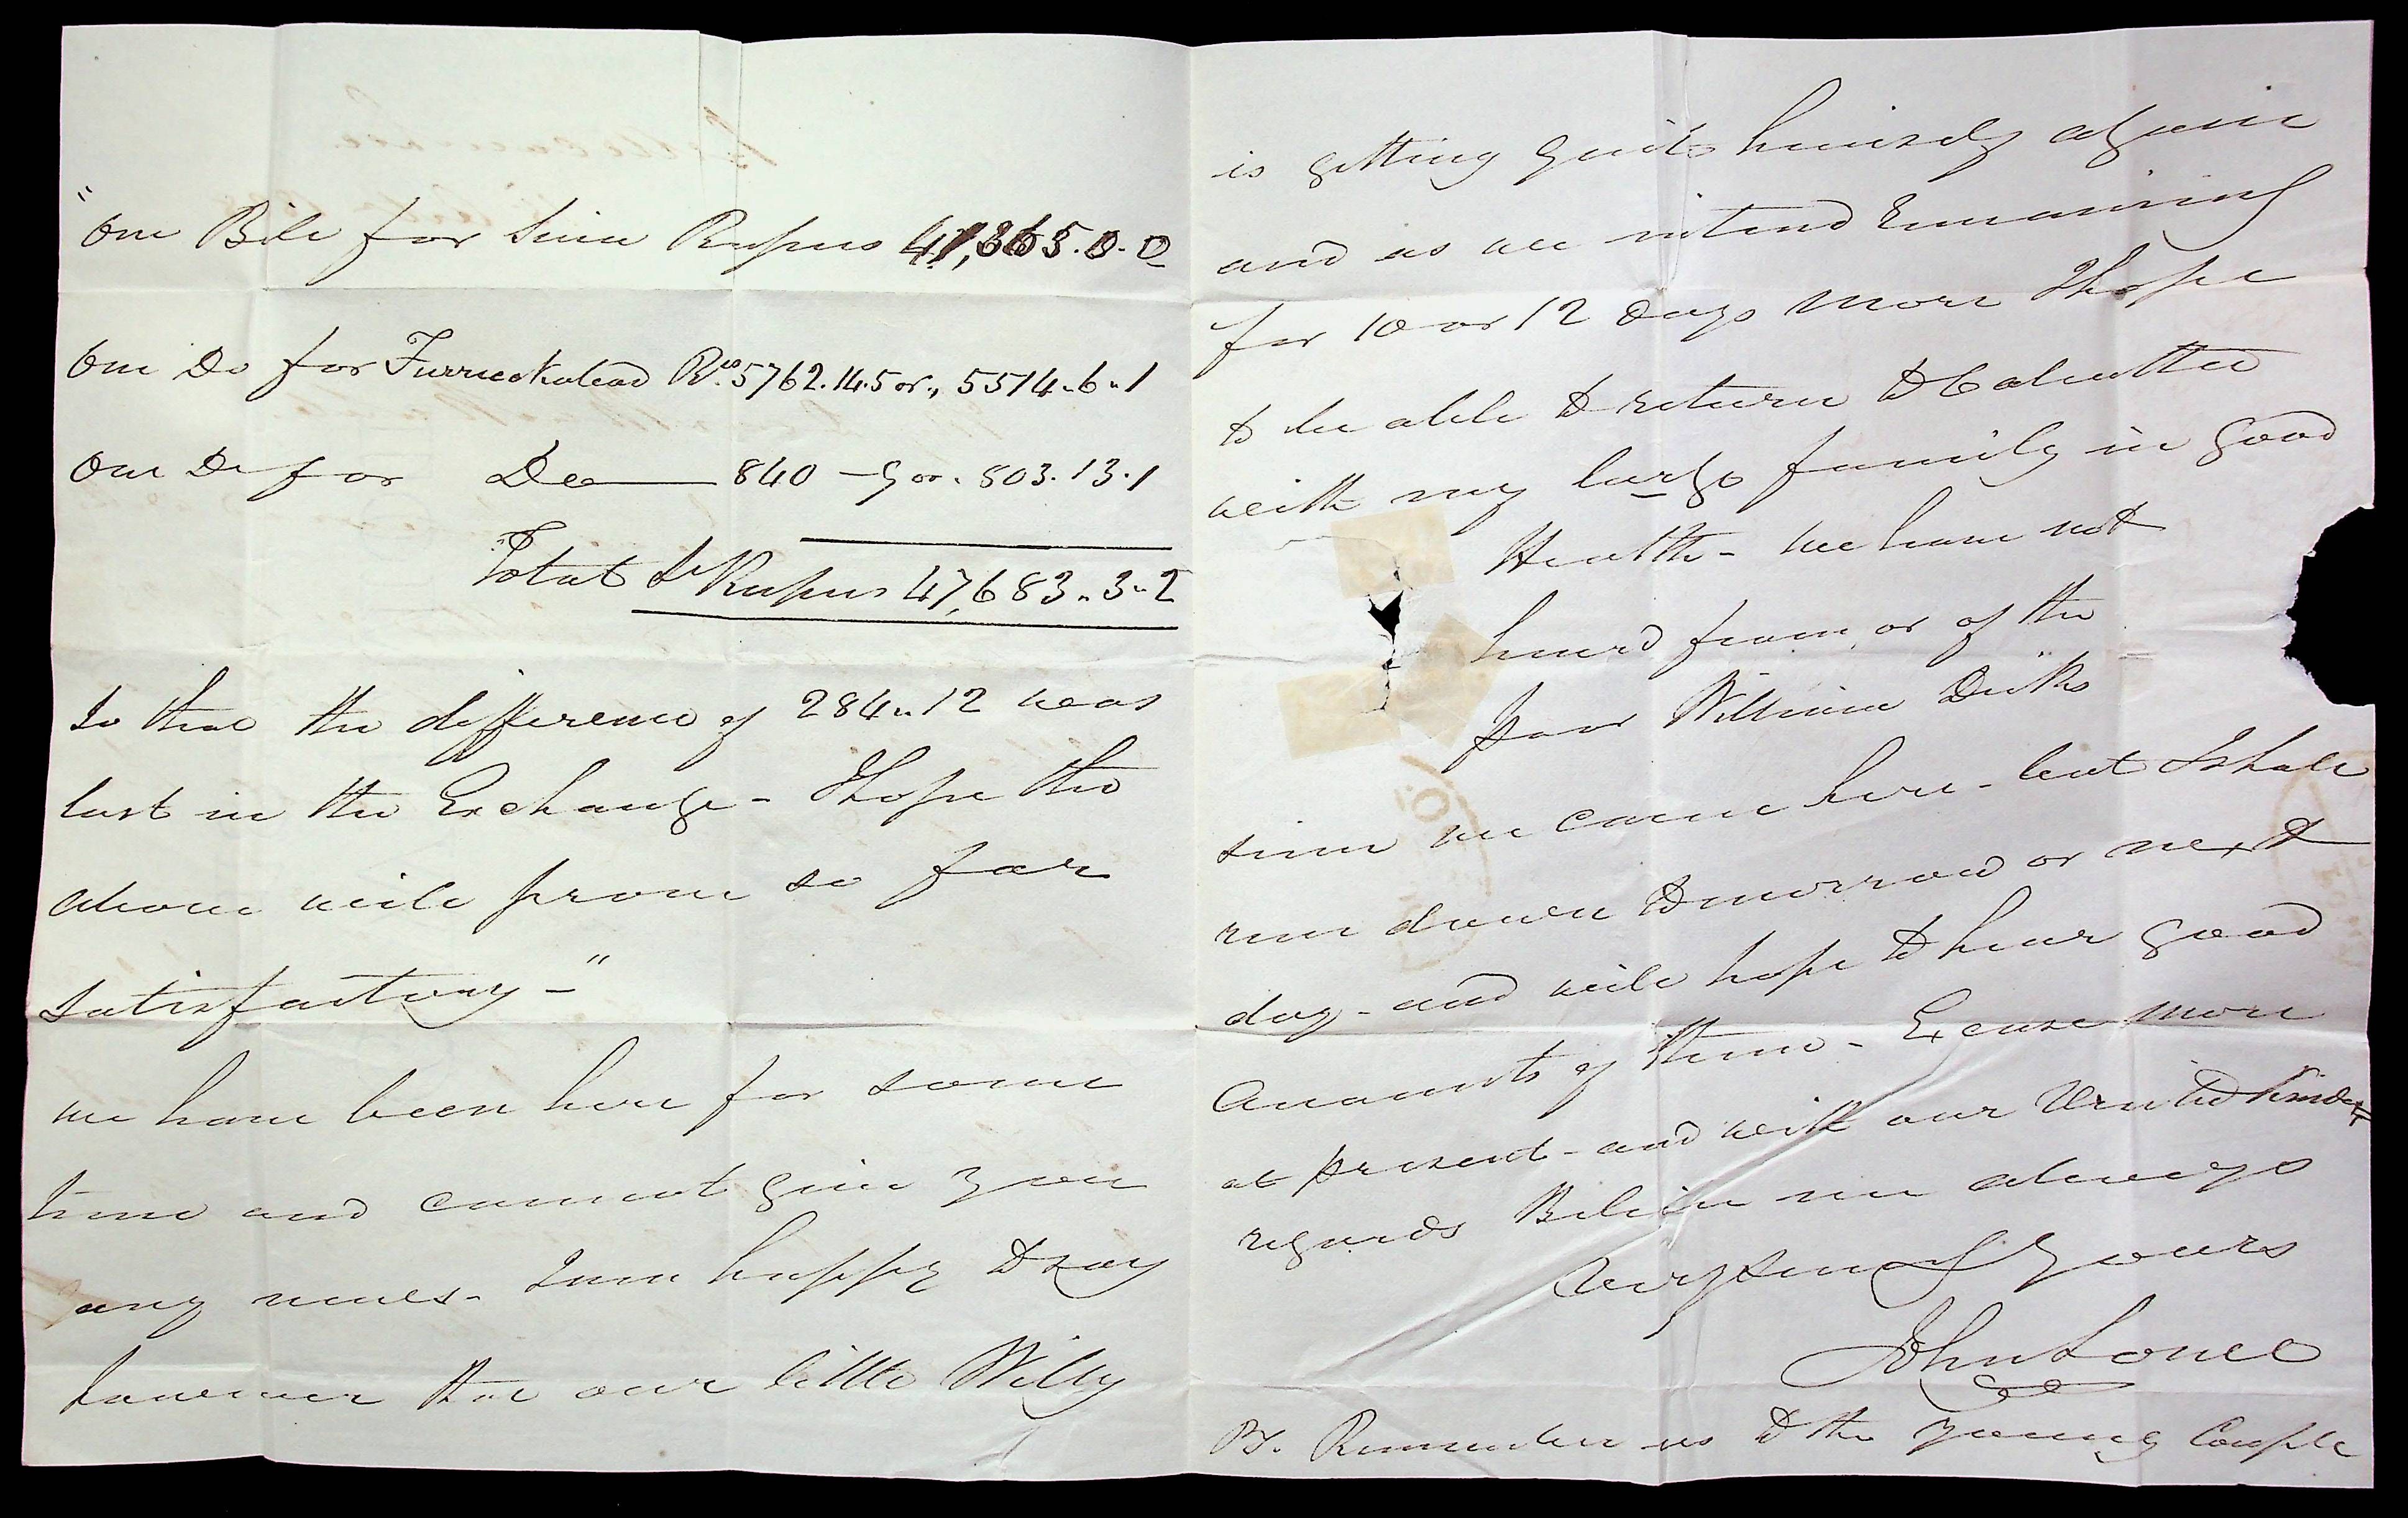 "One Bill for Sicca Rupees 41,365.0.0
One Do for Furruckabad Rs. 5762.14.5 or " 5514 " 6 " 1
One Do for Do 840 - 9 or . 803.13.1
Total Sa Rupees 47,683 " 3 " 2
So that the difference of 284 " 12 was
lost in the Exchange - I hope the
above will prove so far
satisfactory - "
We have been here for some
time and cannot give you
any news - I am happy to say
however that our little Willy
is getting quite himself again
and as we intend remaining
for 10 or 12 days more I hope
to be able to return to Calcutta
with my large family in good
Health - We have not
heard from, or of the
poor William Dicks
since we came here - but I shall
run down tomorrow or next
day - and will hope to hear good
Accounts of them - Excuse more
at present - and with our United kindest
regards Believe me always
Very Sincly Yours
John Lowe
PS. Remember us to the young Couple